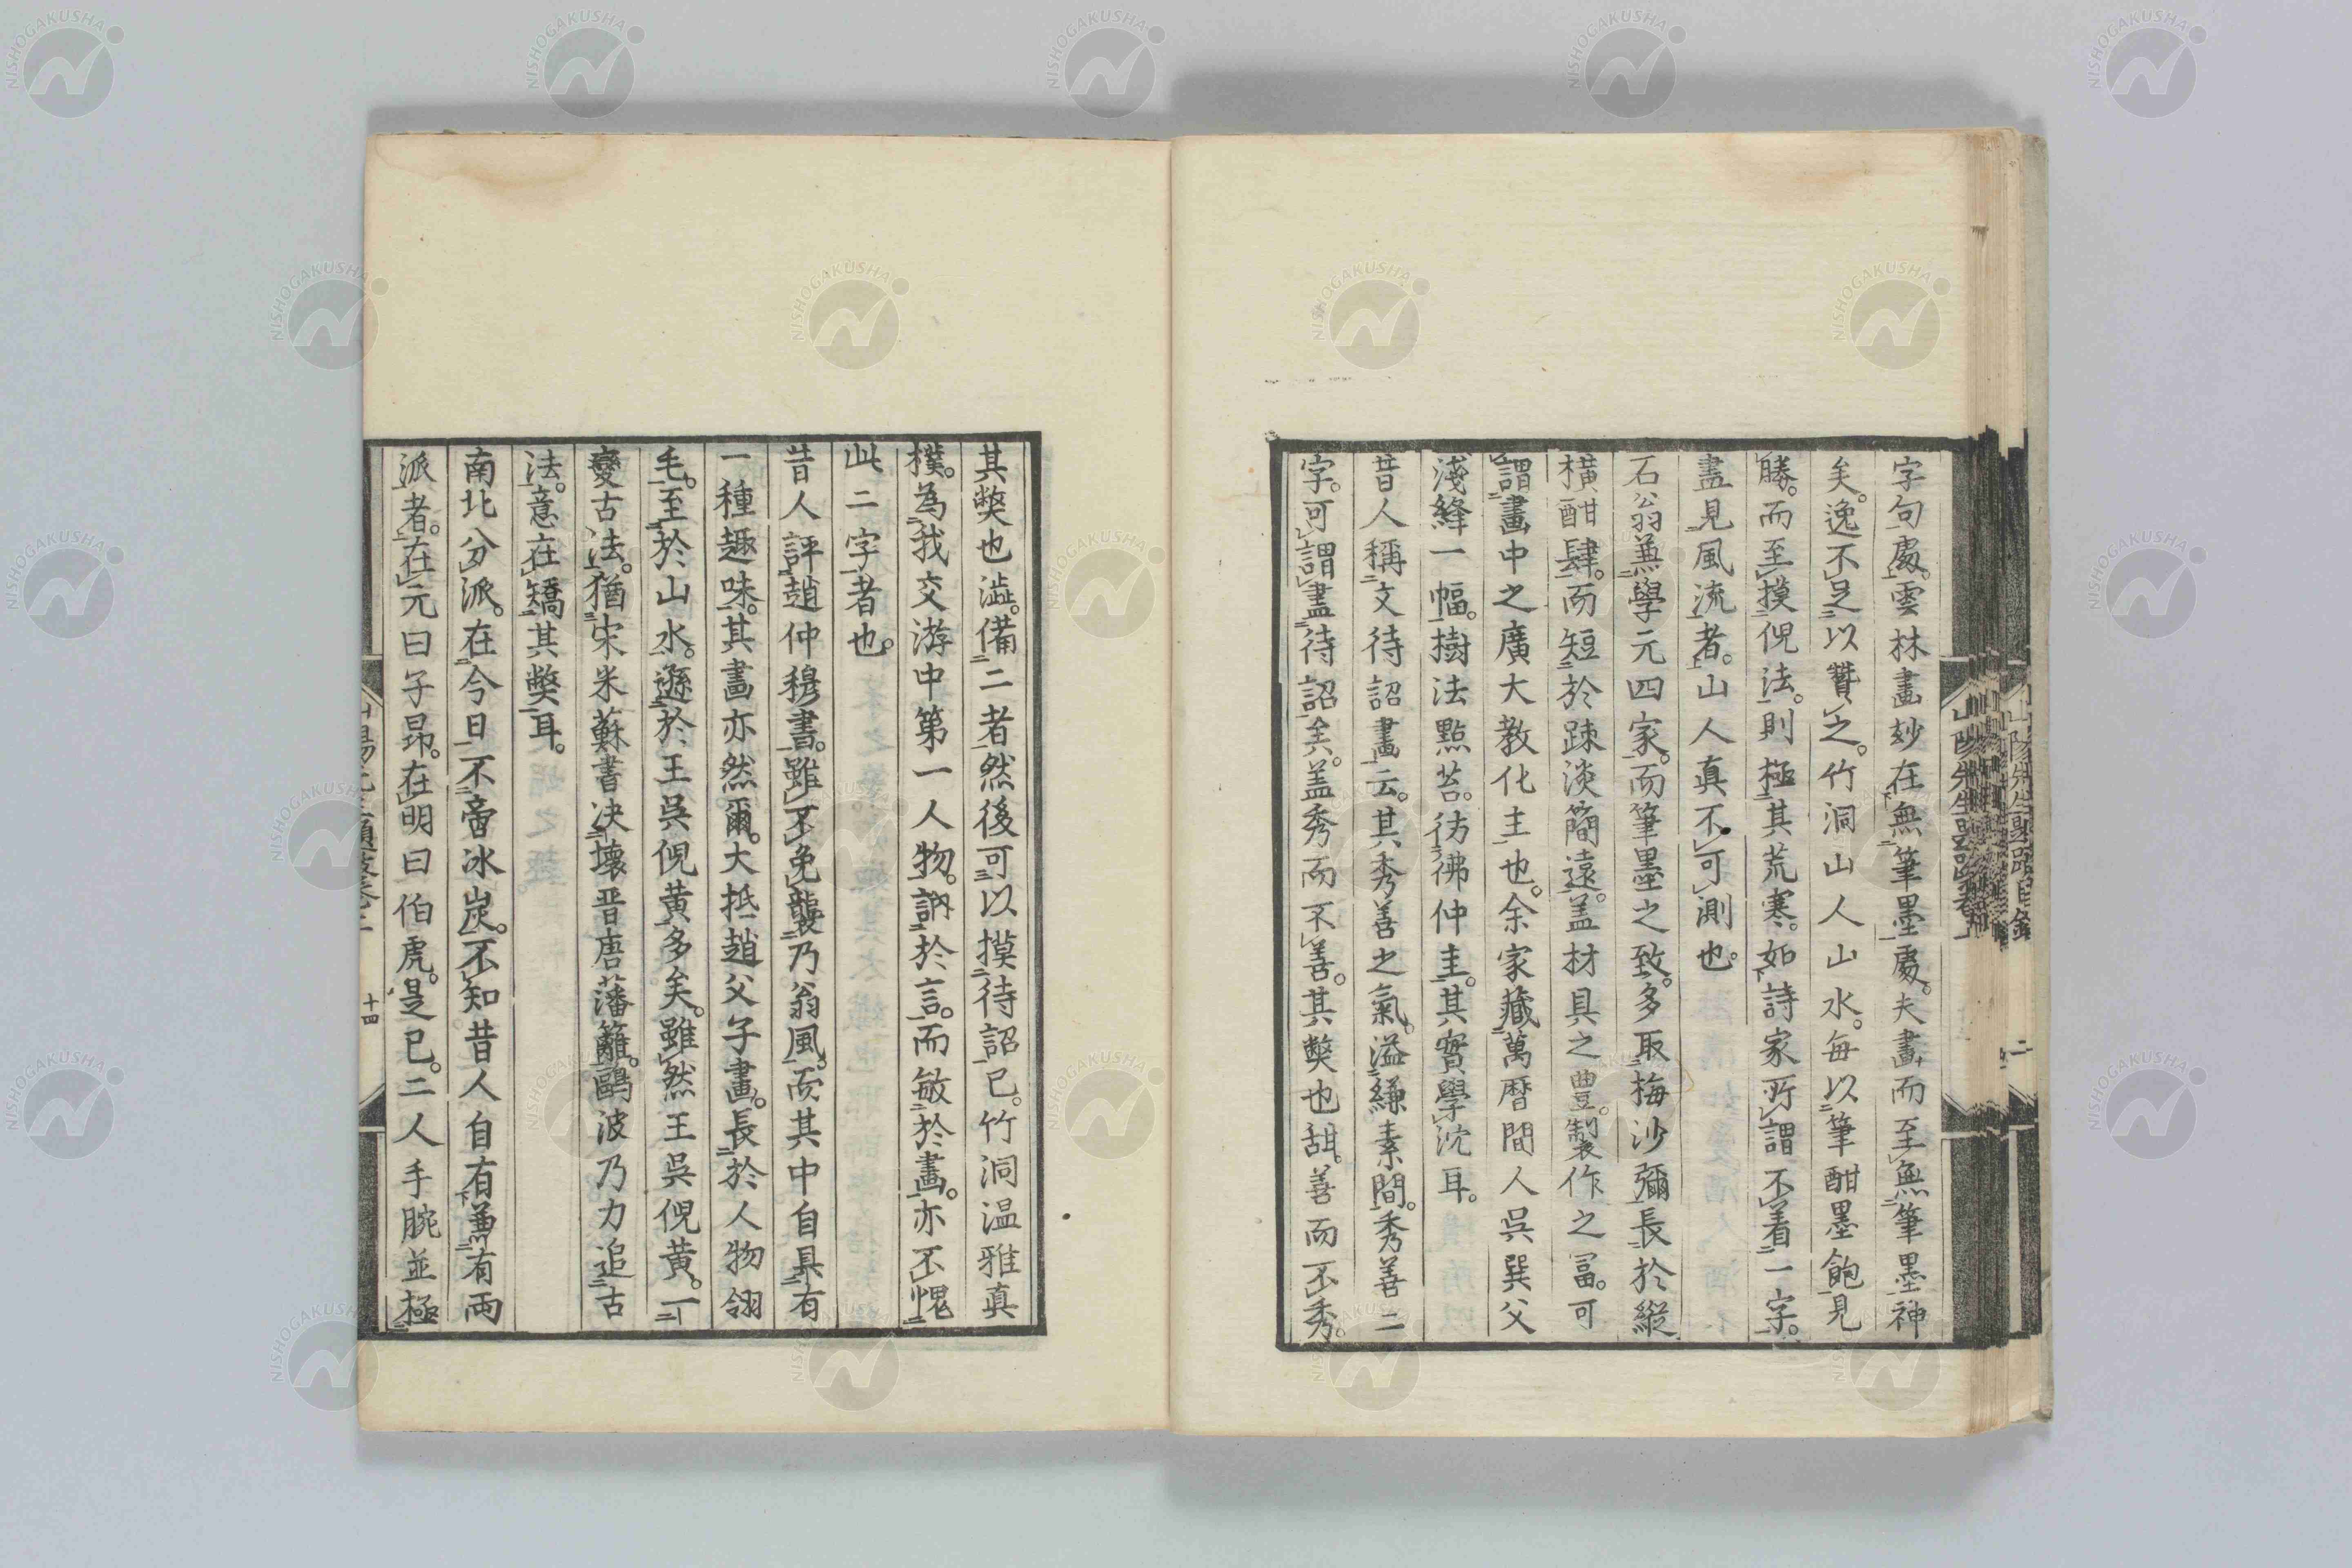 字句處。雲林畫妙在無筆墨處。夫畫而至無筆墨神
矣。逸不足以贊之。竹洞山人山水。每以筆酣墨飽見
勝。而至摸倪法。則極其荒寒。如詩家所謂不着一字。
盡見風流者。山人真不可測也。
石翁兼學元四家。而筆墨之致。多取梅沙彌長於縱
橫酣肆。而短於疎淡簡遠。盖材具之豊。製作之冨。可
謂畫中之廣大教化主也。余家藏萬暦間人呉巽父
淺絳一幅。樹法點苔。彷彿仲圭。其實學沈耳。
昔人稱文待詔畫云。其秀善之氣。溢縑素間。秀善二
字。可謂盡待詔矣。盖秀而不善。其弊也甜。善而不秀。
其弊也澁。備二者然後可以摸待詔已。竹洞温雅真
樸。為我交游中第一人物。訥於言。而敏於畫。亦不愧
此二字者也。
昔人評趙仲穆書。雖不免襲乃翁風。而其中自具有
一種趣味。其畫亦然爾。大抵趙父子畫。長於人物翎
毛。至於山水。遜於王呉倪黄多矣。雖然王呉倪黄。一
變古法。猶宋米蘇書决壊晋唐藩籬。鷗波乃力追古
法。意在矯其弊耳。
南北分派。在今日不啻冰炭。不知昔人自有兼有兩
派者。在元曰子昂。在明曰伯虎。是已。二人手腕並極
十四
NISHOGAKUSHA